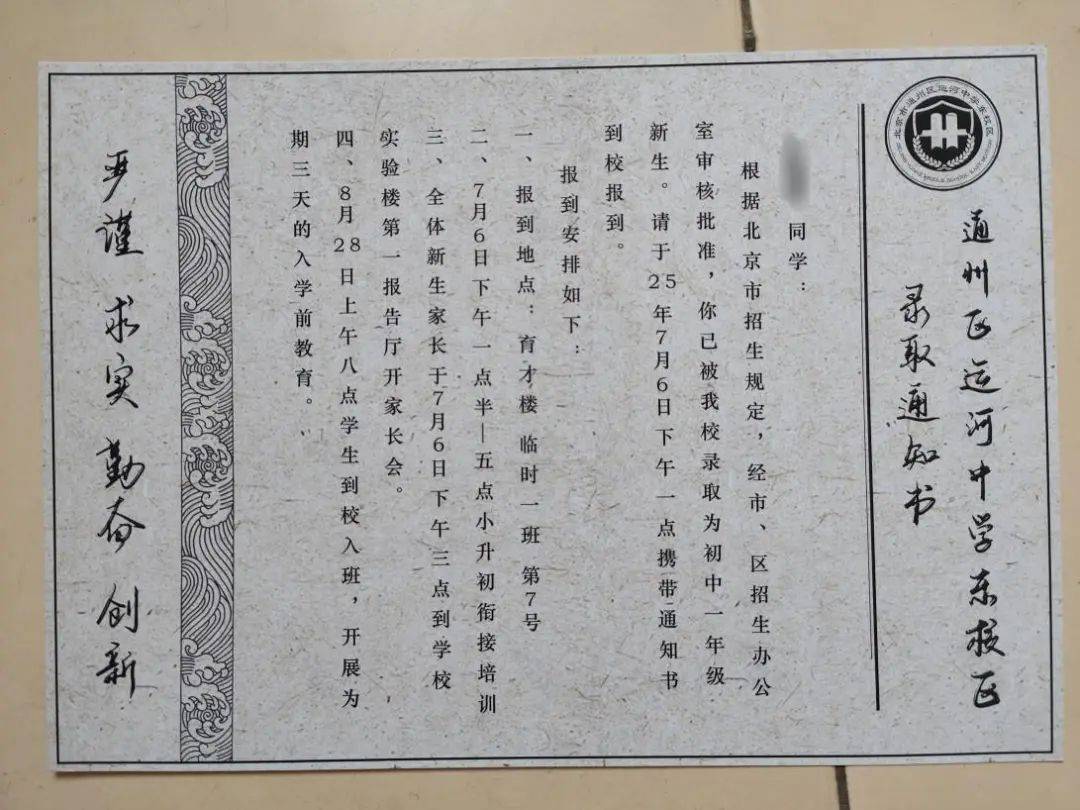 北京市通州区运河中学东校区
通州区运河中学东校区
录取通知书
同学：
根据北京市招生规定，经市、区招生办公
室审核批准，你已被我校录取为初中一年级
新生。请于25年7月6日下午一点携带通知书
到校报到。
报到安排如下：
一、报到地点：育才楼 临时一班 第7号
二、7月6日下午一点半—五点小升初衔接培训
三、全体新生家长于7月6日下午三点到学校
实验楼第一报告厅开家长会。
四、8月28日上午八点学生到校入班，开展为
期三天的入学前教育。
严谨 求实 勤奋 创新